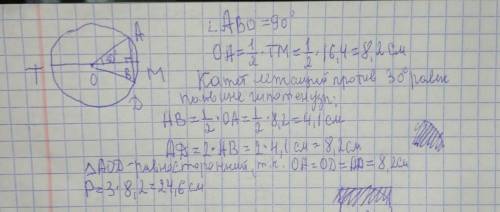 ∠ABO = 90°
OA = 1/2 · TM = 1/2 · 16,4 = 8,2 см
Катет лежащий против 30° равен
половине гипотенузы:
AB = 1/2 · OA = 1/2 · 8,2 = 4,1 см
AD = 2 · AB = 2 · 4,1 см = 8,2 см
△AOD - равносторонний, т.к. OA = OD = AD = 8,2 см
P = 3 · 8,2 = 24,6 см
A
T
O
B
M
D